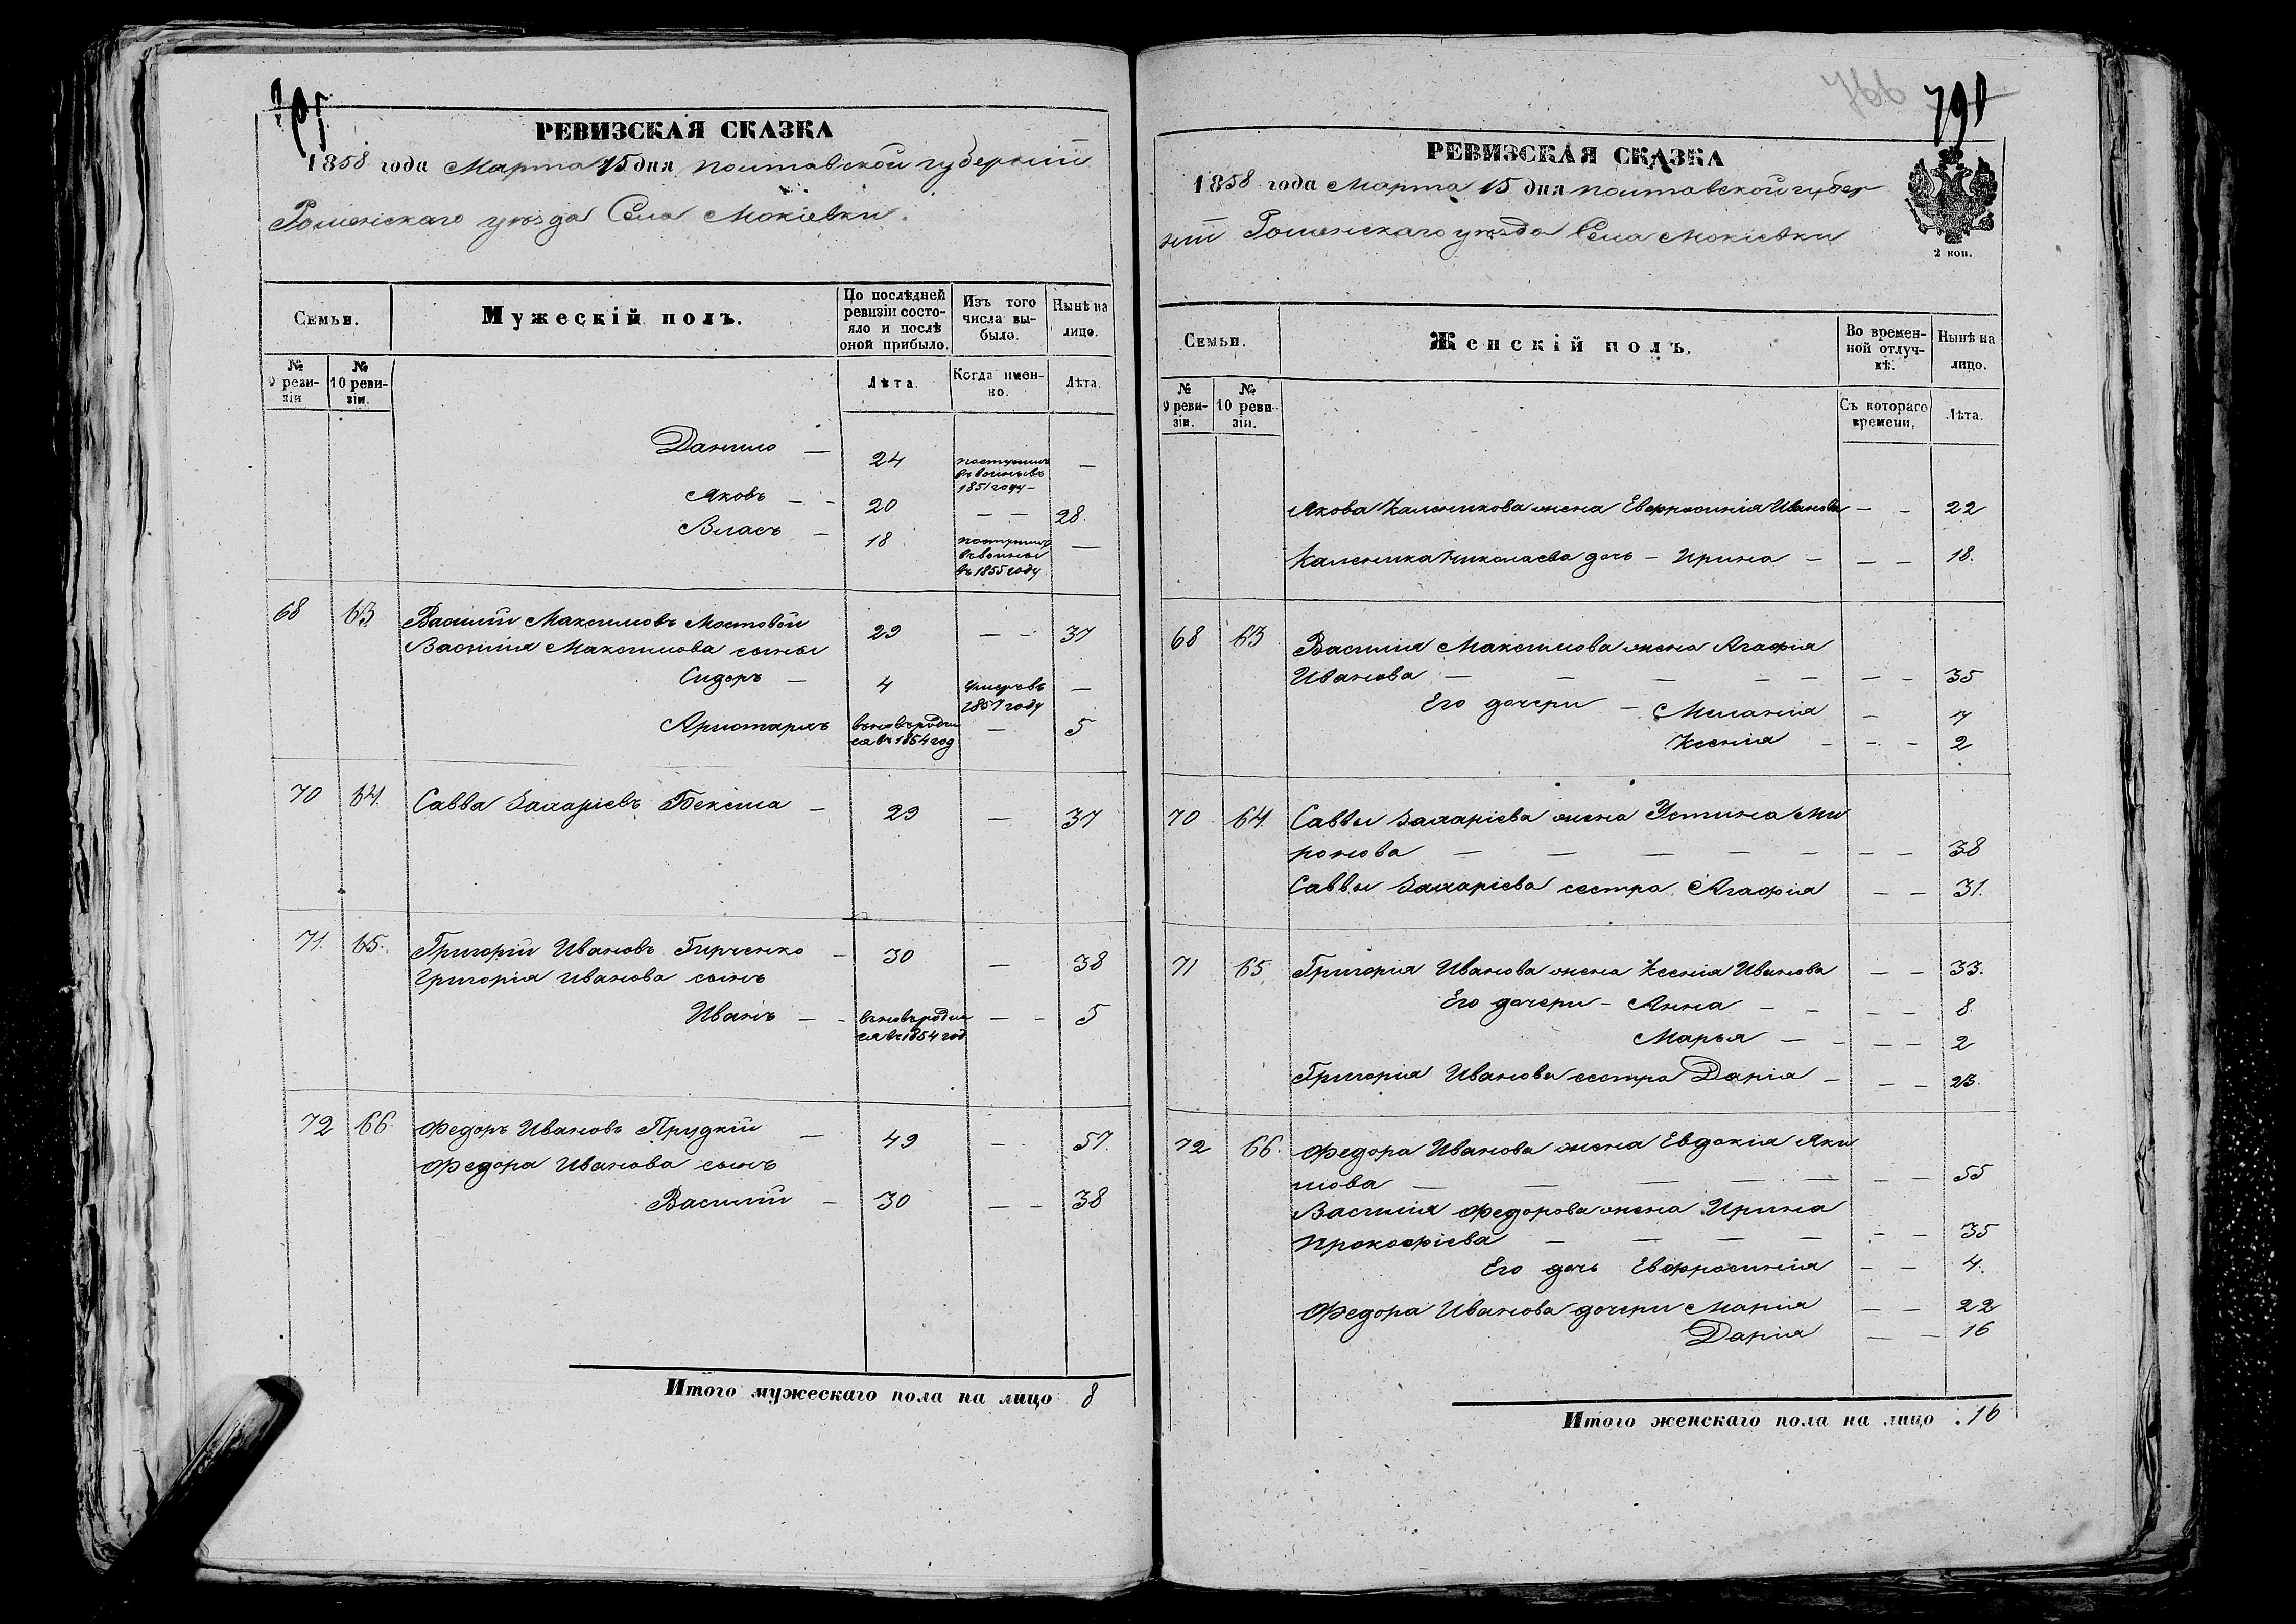 РЕВИЗСКАЯ СКАЗКА
1858 года Марта 15 дня Полтавской губерніи
Роменскаго уѣзда Села Мокіевки.
Семьи.
Мужескій полъ.
По послѣдней ревизіи состояло и послѣ оной прибыло.
Изъ того числа выбыло.
Нынѣ на лицо.
№ 9 ревизіи
№ 10 ревизіи.
Лѣта.
Когда именно.
Лѣта.
Данило — 24 поступилъ въ 1851 году — —
Яковъ — — 20 — — 28.
Власъ — 18 поступилъ въ 1855 году —
68 63 Василій Максимовъ Мостовой 29 — — 37
Василія Максимова сыны
Сидоръ — 4 умеръ въ 1857 году —
Аристархъ вновь родился въ 1854 год — 5
70 64. Савва Захаріевъ Бексма — 29 — 37
71. 65. Григорій Ивановъ Гирченко — 30 — 38
Григорія Иванова сынъ
Иванъ — — вновь родился въ 1854 год — — 5
72 66. Федоръ Ивановъ Прудкій — 49 — 57.
Федора Иванова сынъ
Василій — 30 — — 38
Итого мужескаго пола на лицо 8
766 791
РЕВИЗСКАЯ СКАЗКА
1858 года Марта 15 дня Полтавской губер
ніи Роменскаго уѣзда Села Мокіевки
2 коп.
Семьи.
Женскій полъ.
Во временной отлучкѣ.
Нынѣ на лицо.
№ 9 ревизіи.
№ 10 ревизіи.
Съ котораго времени.
Лѣта.
Якова Каленикова жена Евфросинія Иванова — — 22
Каленика Николаева дочь — Ирина — — — 18.
68 63 Василія Максимова жена Агафія
Иванова — — — — — — — 35
Его дочери — Меланія —
Ксенія — — — 2
70 64. Саввы Захаріева жена Устина Ми
ронова — — — — — — — 38
Саввы Захаріева сестра Агафія — — 31.
71 65. Григорія Иванова жена Ксенія Иванова — — 33.
Его дочери — Анна — — — — 8.
Марья — — — — 2
Григорія Иванова сестра Дарія — — — 23.
72 66. Федора Иванова жена Евдокія Яки
мова — — — — — — — 55
Василія Федорова жена Ирина
Прокофіева — — — — — — 35
Его дочь Евфросинія — — 4.
Федора Иванова дочери Марія — — 22
Дарія — — 16
Итого женскаго пола на лицо . 16